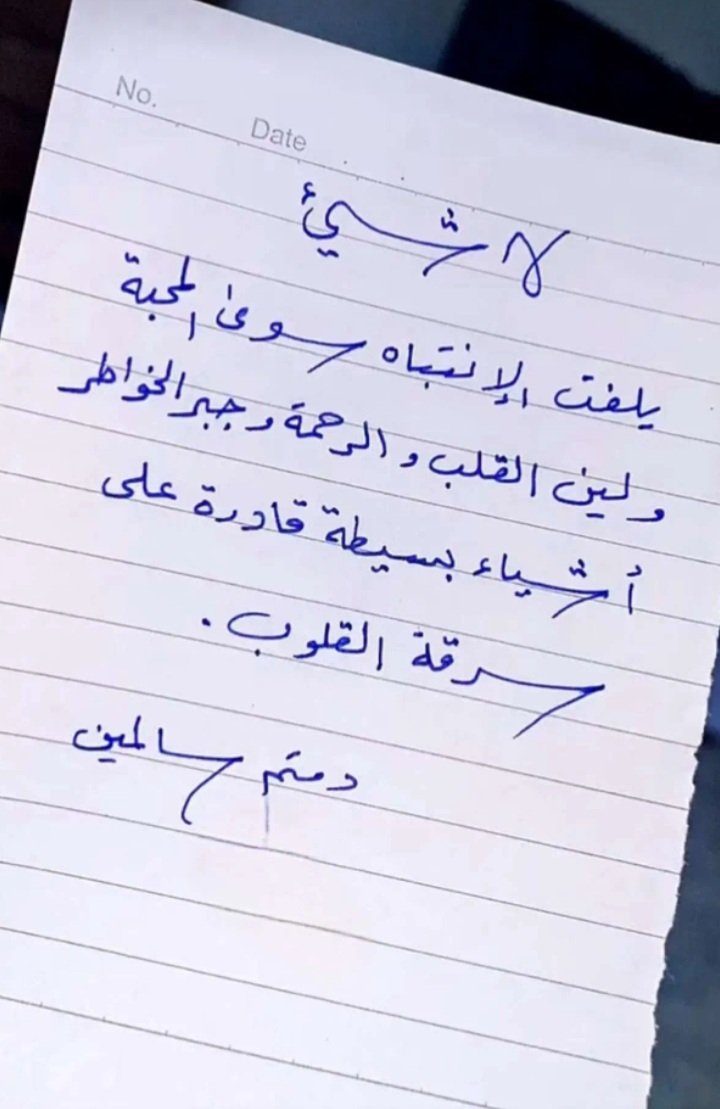 No.
Date
لا شيئ
يلفت الإنتباه سوى المحبة
ولين القلب والرحمة وجبر الخواطر
أشياء بسيطة قادرة على
سرقة القلوب.
دمتم سالمين